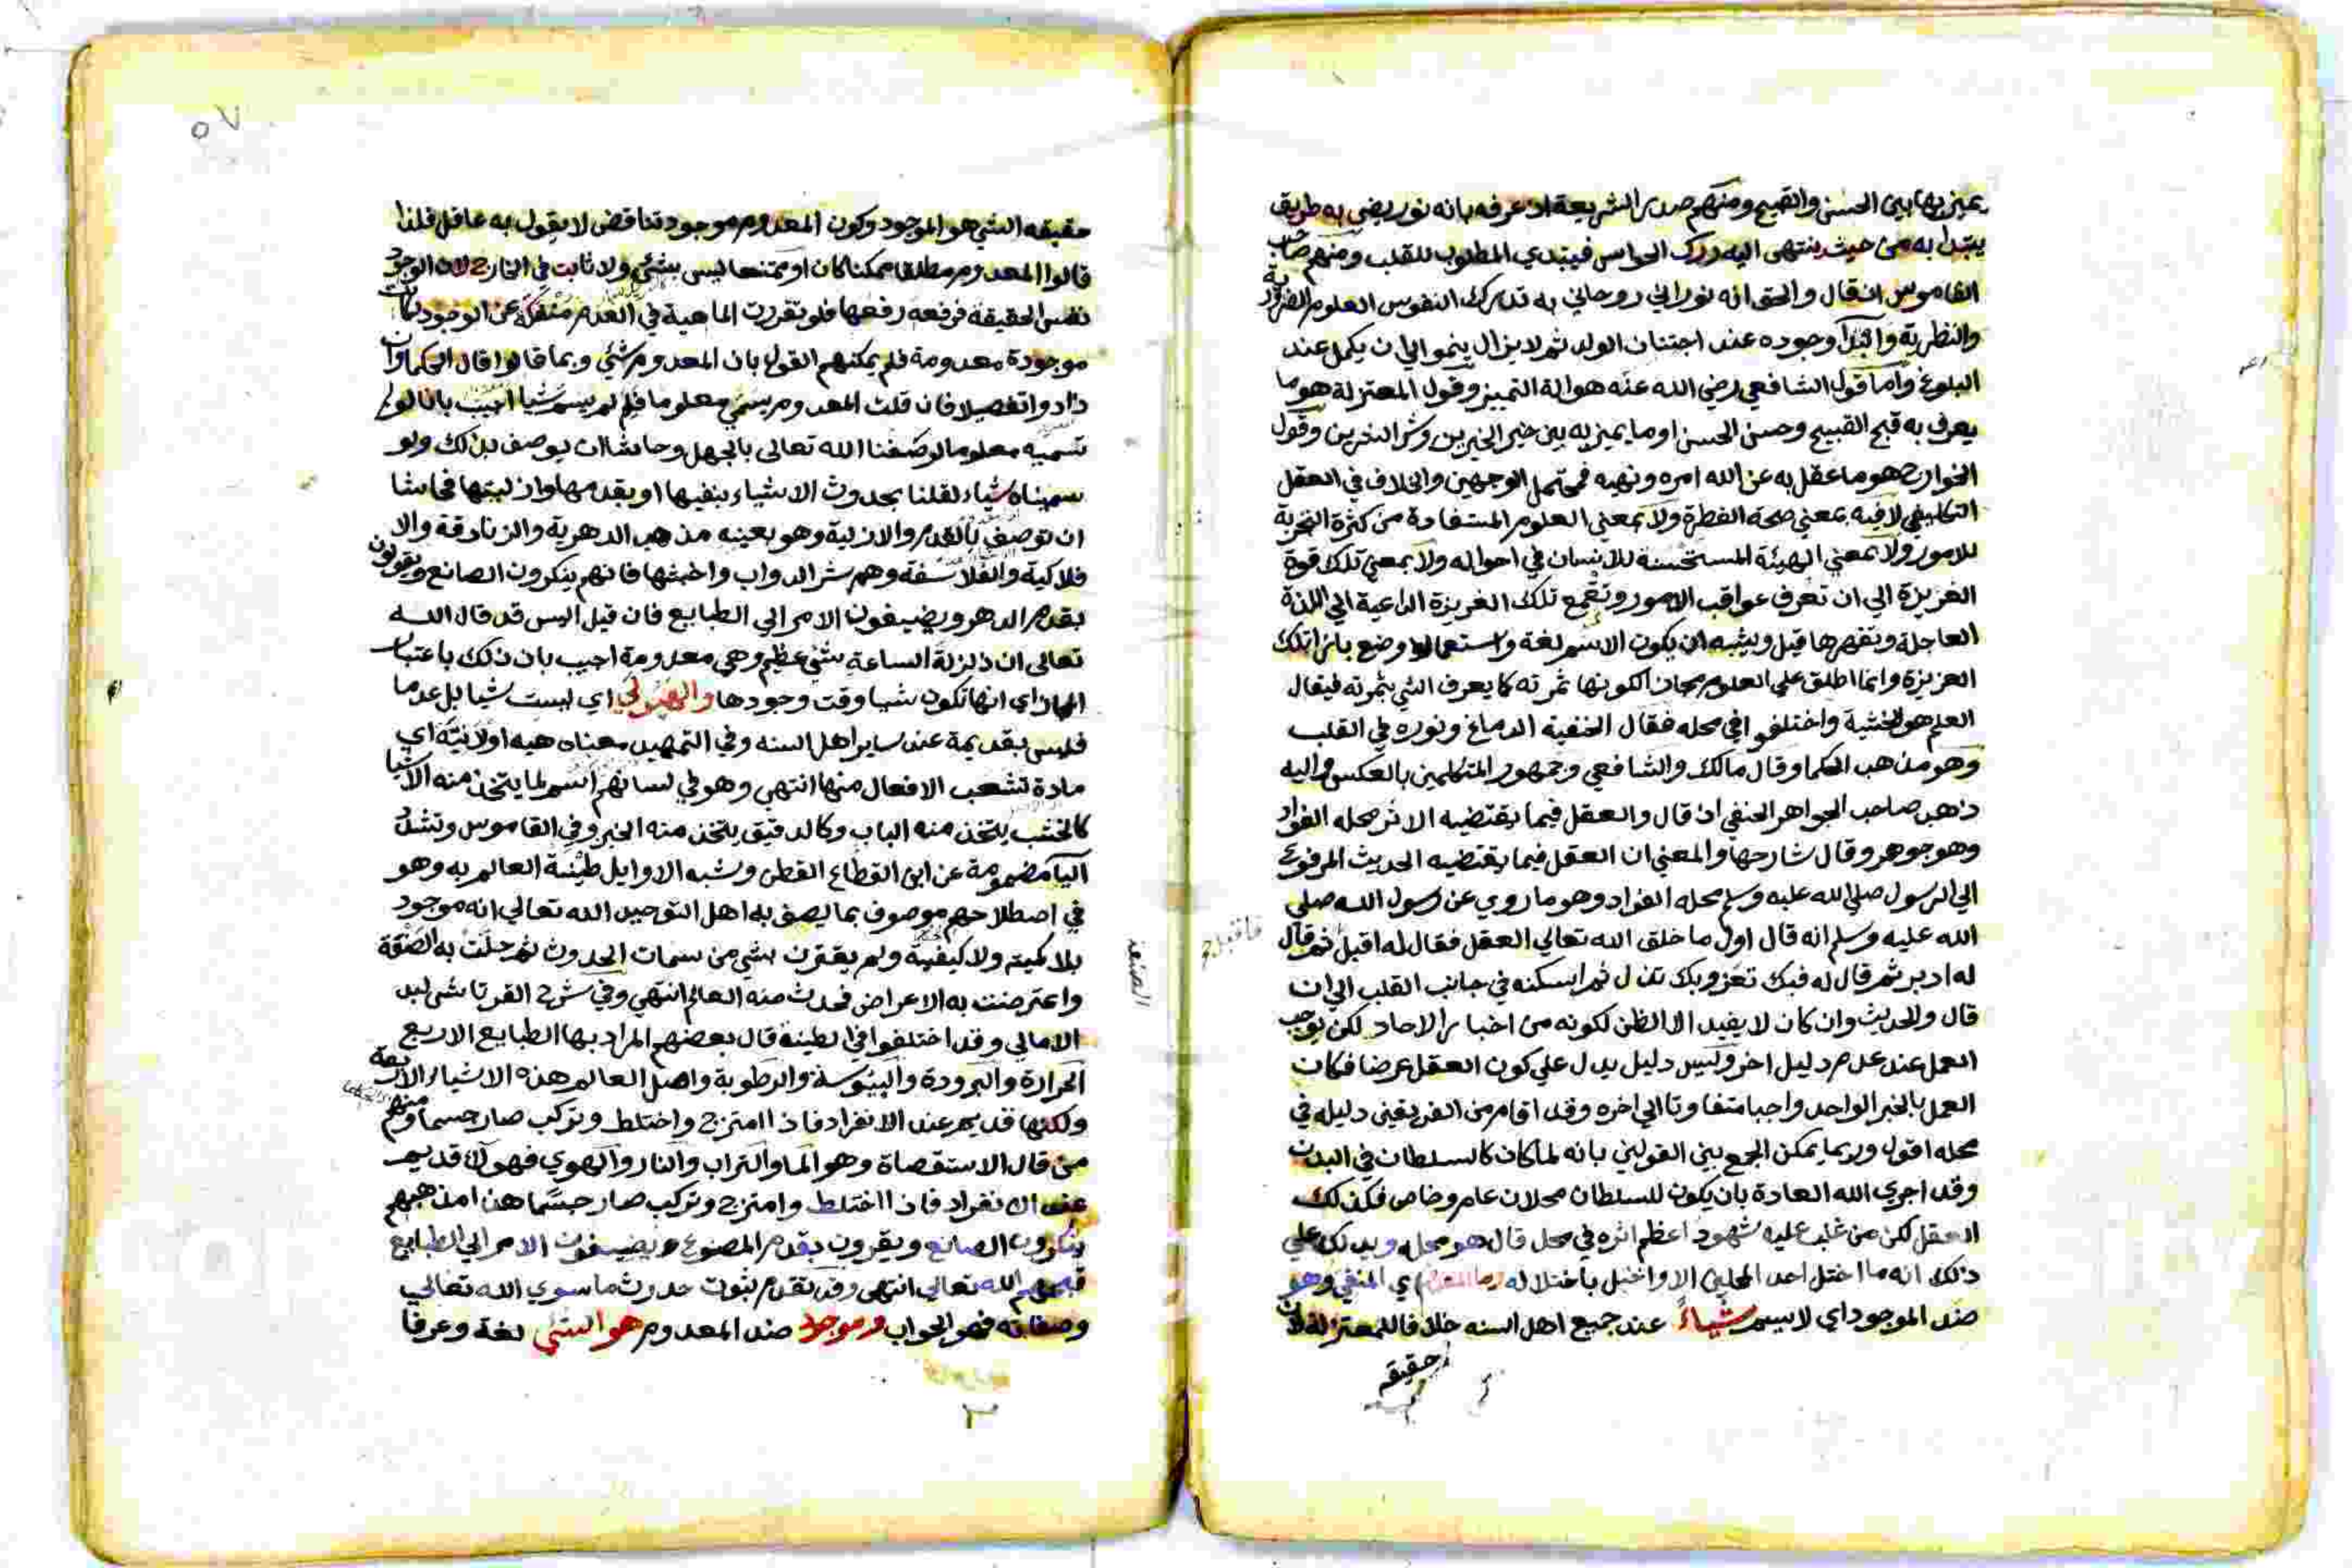 يميز بها بين الحسن والقبيح ومنهم صدر الشريعة اذ عرفه بانه نور يضي به طريق
يبتدا به من حيث ينتهى اليه درك الحواس فيبتدي المطلوب للقلب ومنهم صاحب
القاموس اذ قال والحق انه نوراني روحاني به تدرك النفوس العلوم الضرورية
والنظرية وابتدآ وجوده عند اجتنان الولد ثم لا يزال ينمو الي ان يكمل عند
البلوغ وأما قول الشافعي رضي الله عنه هو الة التمييز وقول المعتزلة هو ما
يعرف به قبح القبيح وحسن الحسن او ما يميز به بين خير الخيرين وشر الشرين وقول
الخوارج هو ما عقل به عن الله امره ونهيه فمحتمل الوجهين والخلاف في العقل
التكليفي لا فيه بمعني صحة الفطرة ولا بمعني العلوم المستفادة من كثرة التجربة
للامور ولا بمعني الهيئة المستحسنة للانسان في احواله ولا بمعني تلك قوة
الغريزة الي ان تعرف عواقب الامور وتقمع تلك الغريزة الداعية الي اللذة
العاجلة وتقهرها قيل ويشبه ان يكون الاسم لغة واستعمالا وضع بازا تلك
الغريزة وانما اطلق علي العلوم مجازا لكونها ثمرته كما يعرف الشي بثمرته فيقال
العلم هو الخشية واختلفوا في محله فقال الحنفية الدماغ ونوره في القلب
وهو مذهب الحكما وقال مالك والشافعي وجمهور المتكلمين بالعكس واليه
ذهب صاحب الجواهر الحنفي اذ قال والعقل فيما يقتضيه الاثر محله الفواد
وهو جوهر وقال شارحها والمعني ان العقل فيما يقتضيه الحديث المرفوع
الي الرسول صلي الله عليه وسلم محله الفواد وهو ما روي عن رسول الله صلي
الله عليه وسلم انه قال اول ما خلق الله تعالي العقل فقال له اقبل ثم قال
فاقبل
له ادبر ثم قال له فبك تعز وبك تذل ثم اسكنه في جانب القلب الي ان
قال والحديث وان كان لا يفيد الا الظن لكونه من اخبار الاحاد لكن يوجب
العمل عند عدم دليل اخر وليس دليل يدل علي كون العقل عرضا فكان
العمل بالخبر الواحد واجبا متفاوتا الي اخره وقد اقام من الفريقين دليله في
محله اقول وربما يمكن الجمع بين القولين بانه لما كان كالسلطان في البدن
وقد اجري الله العادة بان يكون للسلطان محلان عام وخاص فكذلك
العقل لكن من غلب عليه شهود اعظم اثره في محل قال هو محله ويدلك علي
ذلك انه ما اختل احد المحلين الا واختل باختلاله وما المعدوم اي المنفي وهو
ضد الموجود اي لا يسم شياءً عند جميع اهل السنه خلافا للمعتزلة لان
حقيقه
٥٧
حقيقه الشي هو الموجود وكون المعدوم موجود تناقض لا يقول به عاقل فلذا
قالوا المعدوم مطلقا ممكنا كان او ممتنعا ليس بشئ ولا ثابت في الخارج لان الوجود
نفس الحقيقة فرفعه رفعها فلو تقررت الماهية في العدم منفكة عن الوجود لكانت
موجودة معدومة فلم يمكنهم القول بان المعدوم شئ وبما قالوا قال الحكما وان
زادوا تفصيلا فان قلت المعدوم يسمي معلوما فلم لم يسم شيا اجيب بانا لو لم
نسميه معلوما لوصفنا الله تعالى بالجهل وحاشا ان يوصف بذلك ولو
سميناه شياء لقلنا بحدوث الاشياء بنفيها او بقدمها وازليتها فحاشا
ان توصف بالقدم والازلية وهو بعينه مذهب الدهرية والزنادقة والا
فلاكية والفلاسفة وهم شر الدواب واخبثها فانهم ينكرون الصانع ويقولون
بقدم الدهر ويضيفون الامر الي الطبايع فان قيل اليس قد قال الله
تعالى ان زلزلة الساعة شئ عظيم وهي معدومة اجيب بان ذلك باعتبار
المال اي انها تكون شيا وقت وجودها والهيولي اي ليست شيا بل عدما
فليس بقديمة عند ساير اهل السنه وفي التمهيد معناه هيه اولانية اي
مادة تشعب الافعال منها انتهي وهو في لسانهم اسم لما يتخذ منه الاشيا
كالخشب يتخذ منه الباب وكالدقيق يتخذ منه الخبز وفي القاموس وتشدد
اليا مضمومة عن ابن القطاع القطن وشبه الاوايل طينة العالم به وهو
في اصطلاحهم موصوف بما يصف به اهل التوحيد الله تعالي انه موجود
بلا كمية ولا كيفية ولم يقترن بشي من سمات الحدوث ثم حلت به الصنعة
الصنعة
واعترضت به الاعراض فحدث منه العالم انتهي وفي شرح القرتاشي لبد
الامالي وقد اختلفوا في الطينة قال بعضهم المراد بها الطبايع الاربع
الحرارة والبرودة واليبوسة والرطوبة واصل العالم هذه الاشياء الاربعة
ولكنها قديم عند الانفراد فاذا امتزج واختلط وتركب صار جسما ومنهم
من قال الاستقصاة وهو الما والتراب والنار والهوي فهو لا قديم
عند الانفراد فاذا اختلط وامتزج وتركب صار جسما هذا مذهبهم
ينكرون الصانع ويقرون بقدم المصنوع ويضيفون الامر الي الطبايع
قبحهم الله تعالي انتهى وقد تقدم ثبوت حدوث ما سوي الله تعالي
وصفاته فهو الجواب وموجود ضد المعدوم هو الشي لغة وعرفا